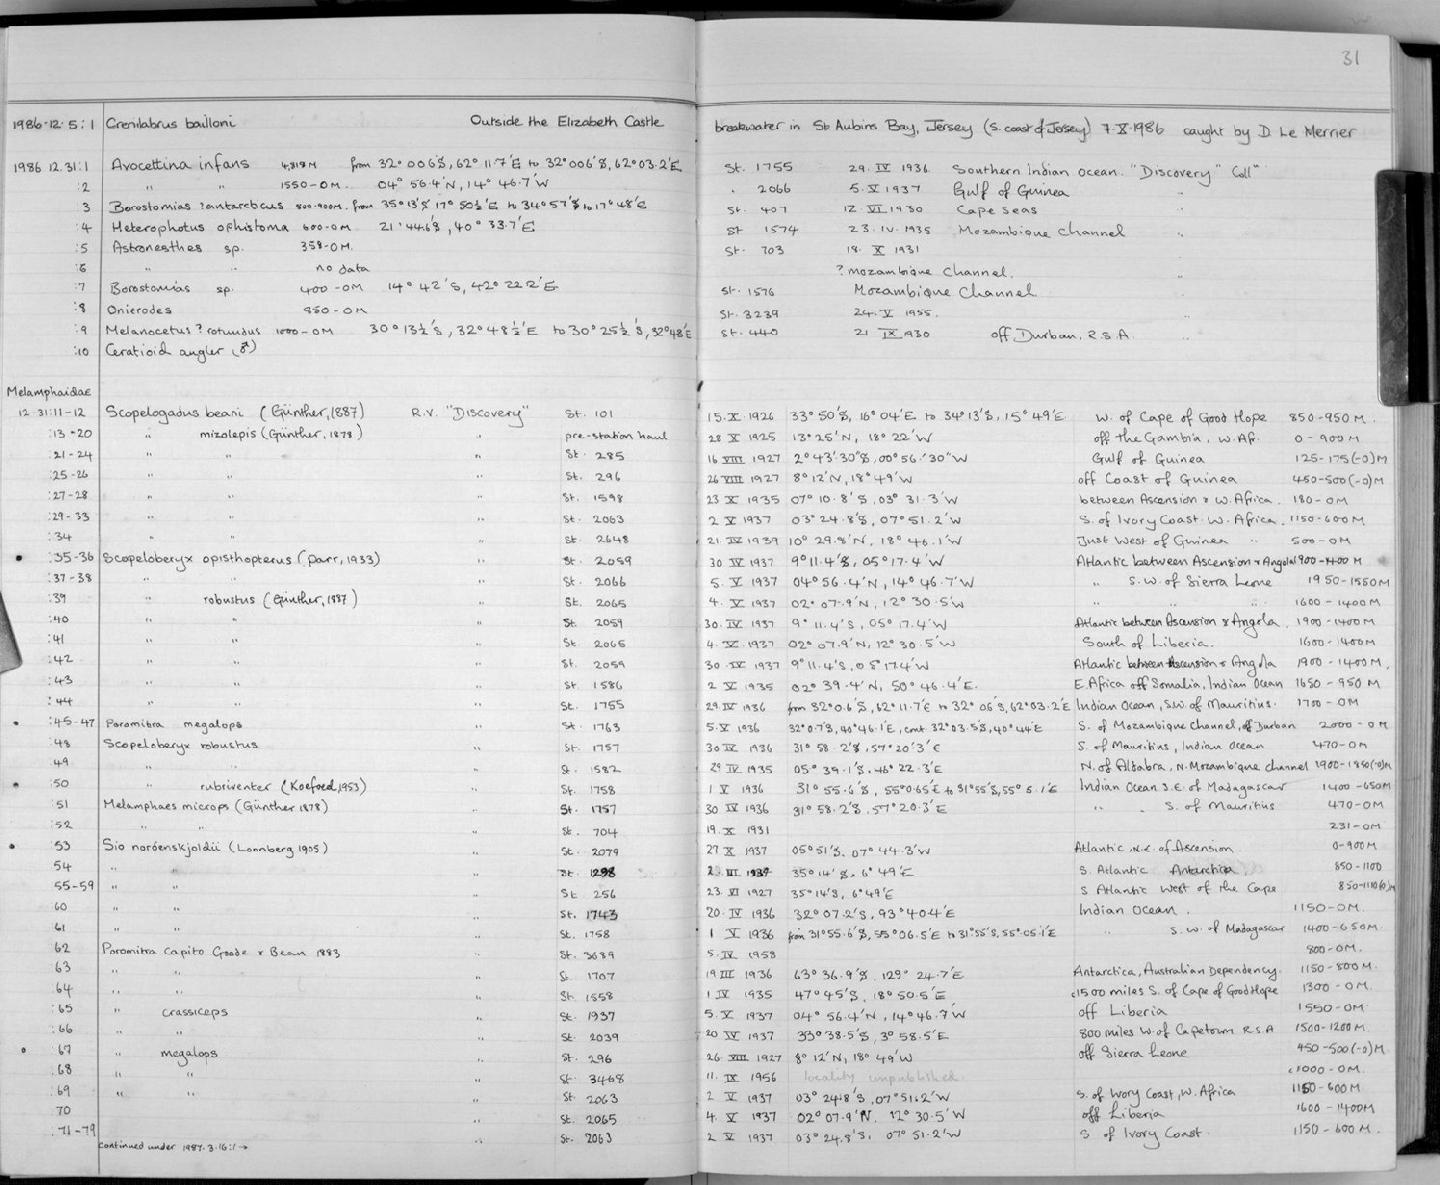 31
1986.12.5:1 Crenilabrus bailloni Outside the Elizabeth Castle breakwater in St Aubins Bay, Jersey (S. coast of Jersey) 7.X.1986 caught by D Le Merrier
1986 12.31:1 Avocettina infans 4,818M from 32°006'S, 62°11.7'E to 32°006'S, 62°03.2'E St. 1755 29.IV 1936 Southern Indian Ocean. "Discovery" Coll"
:2 " " 1550-0M. 04° 56.4'N, 14° 46.7'W . 2066 5.X 1937 Gulf of Guinea "
3 Borostomias ?antarcticus 800-900M. from 35°13'S 17°50½'E to 34°57'S to 17°48'E St. 407 12.VI 1930 Cape seas "
:4 Heterophotus ophistoma 600-0M 21°44.6'S, 40° 33.7'E St 1574 23.IV.1935 Mozambique Channel "
:5 Astronesthes sp. 358-0M. St. 703 18. X 1931
:6 " " no data ? Mozambique Channel. "
:7 Borostomias sp. 400-0M 14° 42'S, 42° 22.2'E St. 1576 Mozambique Channel
:8 Onierodes 850-0M St. 3239 24.V 1955. "
:9 Melanocetus ? rotundus 1000-0M 30°13½'S, 32°48½'E to 30°25½'S, 32°48'E St. 440 21 IX 1930 off Durban, R.S.A. "
:10 Ceratioid angler (♂)
Melamphaidae
12.31:11-12 Scopelogadus beani (Günther, 1887) R.V. "Discovery" St. 101 15.X.1926 33°50'S, 16°04'E to 34°13'S, 15°49'E W. of Cape of Good Hope 850-950M.
:13-20 " mizolepis (Günther, 1878) " pre-station haul 28 X 1925 13°25'N, 18°22'W off the Gambia, W. Af. 0-900M
:21-24 " " " St. 285 16 VIII 1927 2°43'30"S, 00°56'30"W Gulf of Guinea 125-175(-0)M
:25-26 " " " St. 296 26 VIII 1927 8°12'N, 18°49'W off Coast of Guinea 450-500(-0)M
:27-28 " " " St. 1598 23 X 1935 07° 10.8'S, 03° 31.3'W between Ascension & W. Africa. 180-0M
:29-33 " " " St. 2063 2 V 1937 03° 24.8'S, 07° 51.2'W S. of Ivory Coast. W. Africa. 1150-600M
:34 " " " St. 2648 21 IV 1939 10° 29.8'N, 18° 46.1'W Just West of Guinea " 500-0M
:35-36 Scopeloberyx opisthopterus (Parr, 1933) " St. 2059 30 IV 1937 9°11.4'S, 05°17.4'W Atlantic between Ascension & Angola 1900-1400M
:37-38 " " " St. 2066 5. V 1937 04° 56.4'N, 14° 46.7'W " S.W. of Sierra Leone 1950-1550M
:39 " robustus (Günther, 1887) " St. 2065 4. V 1937 02° 07.9'N, 12° 30.5'W " " " 1600-1400M
:40 " " " St. 2059 30. IV 1937 9° 11.4'S, 05° 17.4'W Atlantic between Ascension & Angola 1900-1400M
:41 " " " St. 2065 4. V 1937 02° 07.9'N, 12° 30.5'W South of Liberia. 1600-1400M
:42 " " " St. 2059 30 IV 1937 9°11.4'S, 05°17.4'W Atlantic between Ascension & Angola 1900-1400M.
:43 " " " St. 1586 2 V 1935 02° 39.4'N, 50° 46.4'E. E. Africa off Somalia, Indian Ocean 1650-950M
:44 " " " St. 1755 29.IV 1936 from 32°0.6'S, 62°11.7'E to 32°06'S, 62°03.2'E Indian Ocean, S.W. of Mauritius. 1700-0M
:45-47 Poromitra megalops " St. 1763 5.V 1936 32°0.7'S, 40°46.1'E, cont 32°03.5'S, 40°44'E S. of Mozambique Channel, off Durban 2000-0M
:48 Scopeloberyx robustus " St. 1757 30 IV 1936 31° 58.2'S, 57°20.3'E S. of Mauritius, Indian Ocean 470-0M
:49 " " " St. 1582 29 IV 1935 05° 39.1'S, 46° 22.3'E N. of Aldabra, N. Mozambique Channel 1900-1850(-0)M
:50 " rubriventer (Koefoed, 1953) " St. 1758 1 V 1936 31°55.6'S, 55°0.65'E to 31°55'S, 55°5.1'E Indian Ocean S.E. of Madagascar 1400-650M
:51 Melamphaes microps (Günther 1878) " St. 1757 30 IV 1936 31° 58.2'S, 57°20.3'E " S. of Mauritius 470-0M
:52 " " " St. 704 19. X 1931 231-0M
:53 Sio nordenskjoldii (Lonnberg 1905) " St. 2079 27 X 1937 05°51'S, 07° 44.3'W Atlantic N.E. of Ascension 0-900M
54 " " " St. 1298 35°14'S, 6°49'E S. Atlantic 850-1100
55-59 " " " St 256 23. VI 1927 35°14'S, 6°49'E S Atlantic West of the Cape 850-1100(-0)M
60 " " " St. 1743 20. IV 1936 32°07.2'S, 93°40.4'E Indian Ocean. 1150-0M.
61 " " " St. 1758 1 V 1936 from 31°55.6'S, 55°06.5'E to 31°55'S, 55°05.1'E " S.W. of Madagascar 1400-650M
62 Poromitra capito Goode & Bean 1883 " St. 3639 5. IX 1958 800-0M.
63 " " " St. 1707 19 III 1936 63° 36.9'S, 129° 24.7'E Antarctica, Australian Dependency. 1150-800M
:64 " " " St. 1558 1 IV 1935 47°45'S, 18°50.5'E c1500 miles S. of Cape of Good Hope 1300-0M.
:65 " crassiceps " St. 1937 5. V 1937 04° 56.4'N, 14° 46.7'W off Liberia 1550-0M
:66 " " " St. 2039 20 IV 1937 33°38.5'S, 3° 58.5'E 800 miles W. of Capetown R.S.A 1500-1200M.
:67 " megalops " St. 296 26. VIII 1927 8° 12'N, 18° 49'W off Sierra Leone 450-500(-0)M
:68 " " " St. 3468 11. IX 1956 locality unpublished c1000-0M.
:69 " " " St. 2063 2 V 1937 03° 24.8'S, 07°51.2'W S. of Ivory Coast, W. Africa 1150-600M
70 St. 2065 4. V 1937 02° 07.9'N. 12° 30.5'W off Liberia 1600-1400M
:71-79 " St. 2063 2 V 1937 03° 24.8'S, 07° 51.2'W S of Ivory Coast. 1150-600M
continued under 1987.3.16:1 →